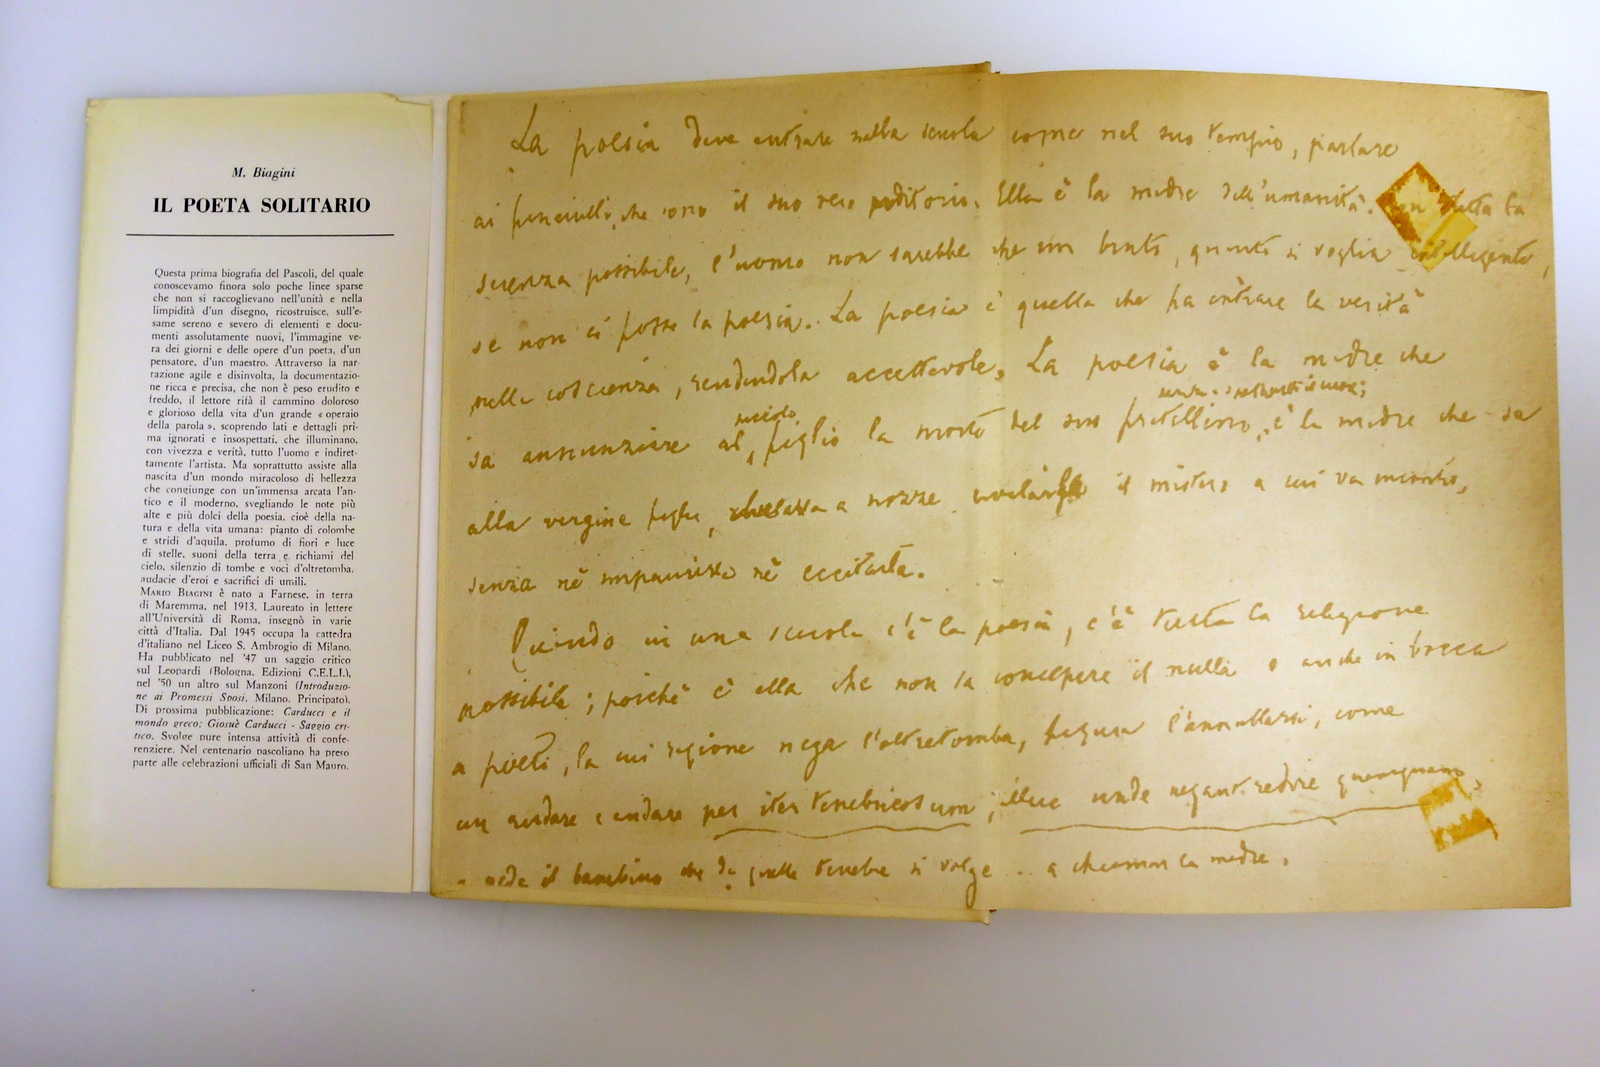 M. Biagini
IL POETA SOLITARIO
Questa prima biografia del Pascoli, del quale
conoscevamo finora solo poche linee sparse
che non si raccoglievano nell'unità e nella
limpidità d'un disegno, ricostruisce, sull'e-
same sereno e severo di elementi e docu-
menti assolutamente nuovi, l'immagine ve-
ra dei giorni e delle opere d'un poeta, d'un
pensatore, d'un maestro. Attraverso la nar-
razione agile e disinvolta, la documentazio-
ne ricca e precisa, che non è peso erudito e
freddo, il lettore rifà il cammino doloroso
e glorioso della vita d'un grande « operaio
della parola », scoprendo lati e dettagli pri-
ma ignorati e insospettati, che illuminano,
con vivezza e verità, tutto l'uomo e indiret-
tamente l'artista. Ma soprattutto assiste alla
nascita d'un mondo miracoloso di bellezza
che congiunge con un'immensa arcata l'an-
tico e il moderno, svegliando le note più
alte e più dolci della poesia, cioè della na-
tura e della vita umana: pianto di colombe
e stridi d'aquila, profumo di fiori e luce
di stelle, suoni della terra e richiami del
cielo, silenzio di tombe e voci d'oltretomba,
audacie d'eroi e sacrifici di umili.
MARIO BIAGINI è nato a Farnese, in terra
di Maremma, nel 1913. Laureato in lettere
all'Università di Roma, insegnò in varie
città d'Italia. Dal 1945 occupa la cattedra
d'italiano nel Liceo S. Ambrogio di Milano.
Ha pubblicato nel '47 un saggio critico
sul Leopardi (Bologna, Edizioni C.E.L.I.),
nel '50 un altro sul Manzoni (Introduzio-
ne ai Promessi Sposi, Milano, Principato).
Di prossima pubblicazione: Carducci e il
mondo greco; Giosuè Carducci - Saggio cri-
tico. Svolge pure intensa attività di confe-
renziere. Nel centenario pascoliano ha preso
parte alle celebrazioni ufficiali di San Mauro.
La poesia deve entrare nella scuola come nel suo tempio, parlare
ai fanciulli, che sono il suo vero uditorio. Ella è la madre dell'umanità. Con tutta la
scienza possibile, l'uomo non sarebbe che un bruto, quanto si voglia intelligente,
se non ci fosse la poesia. La poesia è quella che fa entrare la verità
nella coscienza, rendendola accettevole. La poesia è la madre che
sa annunziare al piccolo figlio la morte del suo fratellino, è la madre che sa
alla vergine figlia, a nozze il mistero a cui va incontro,
senza nè impaurirla nè eccitarla.
Quando in una scuola c'è la poesia, c'è tutta la religione
possibile; poichè è ella che non sa concepire il nulla e anche in bocca
a poeti, la cui ragione nega l'oltretomba, figura l'annullarsi, come
un andare e andare per iter tenebricosum, illuc unde negant redire quemquam
e vede il bambino che da quelle tenebre si volge .. a chiamar la madre.